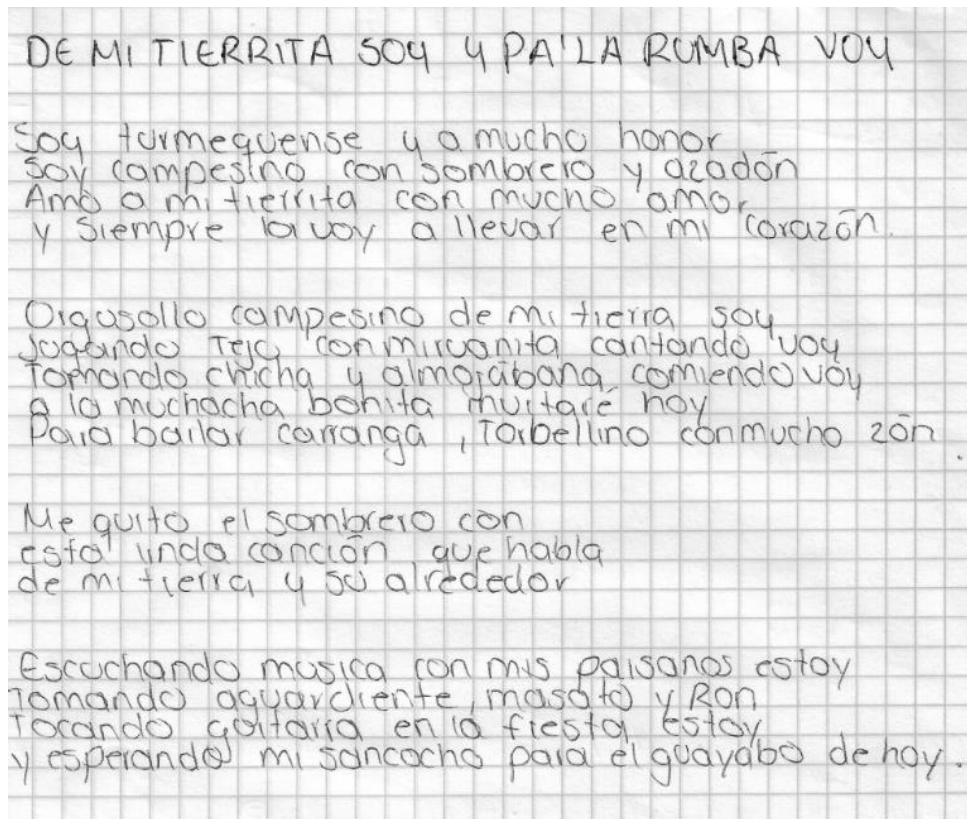 DE MI TIERRITA SOY Y PA'LA RUMBA VOY
Soy turmequense y a mucho honor
Soy campesino con sombrero y azadón
Amo a mi tierrita con mucho amor
y siempre la voy a llevar en mi corazón.
Orgusollo campesino de mi tierra soy
Jogando Teja con mi ruanita cantando voy
Tomando chicha y almojábana comiendo voy
a la muchacha bonita invitaré hoy
Para bailar carranga, Torbellino con mucho zón.
Me quito el sombrero con
esta linda canción que habla
de mi tierra y su alrededor
Escuchando musica con mis paisanos estoy
Tomando aguardiente, masato y Ron
Tocando guitarra en la fiesta estoy
y esperando mi sancocho para el guayabo de hoy.